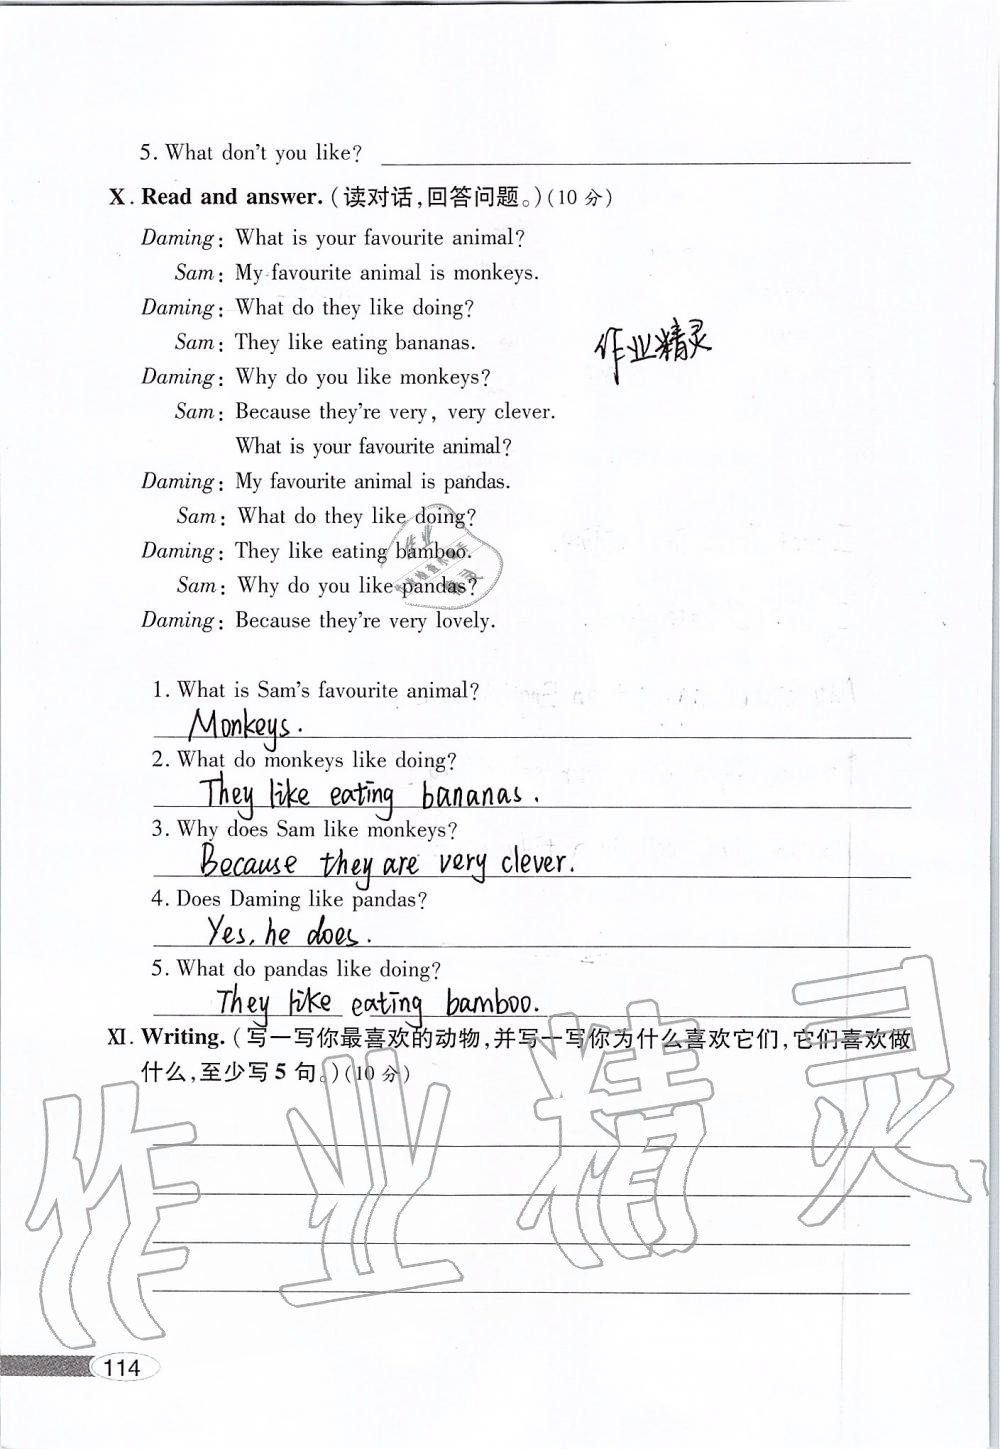 5. What don't you like?
X. Read and answer.(读对话,回答问题。)(10分)
Daming: What is your favourite animal?
Sam: My favourite animal is monkeys.
Daming: What do they like doing?
Sam: They like eating bananas.
作业精灵
Daming: Why do you like monkeys?
Sam: Because they're very, very clever.
What is your favourite animal?
Daming: My favourite animal is pandas.
Sam: What do they like doing?
Daming: They like eating bamboo.
Sam: Why do you like pandas?
Daming: Because they're very lovely.
1. What is Sam's favourite animal?
Monkeys.
2. What do monkeys like doing?
They like eating bananas.
3. Why does Sam like monkeys?
Because they are very clever.
4. Does Daming like pandas?
Yes, he does.
5. What do pandas like doing?
They like eating bamboo.
XI. Writing.(写一写你最喜欢的动物,并写一写你为什么喜欢它们,它们喜欢做
什么,至少写5句。)(10分)
作业精灵
114